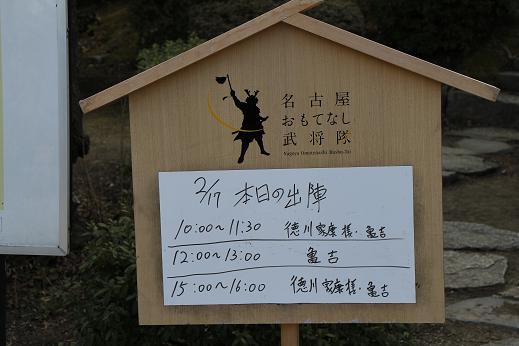 名古屋
おもてなし
武将隊
Nagoya Omotenashi Busho-Tai
2/17 本日の出陣
10:00~11:30 徳川家康様・亀吉
12:00~13:00 亀吉
15:00~16:00 徳川家康様・亀吉